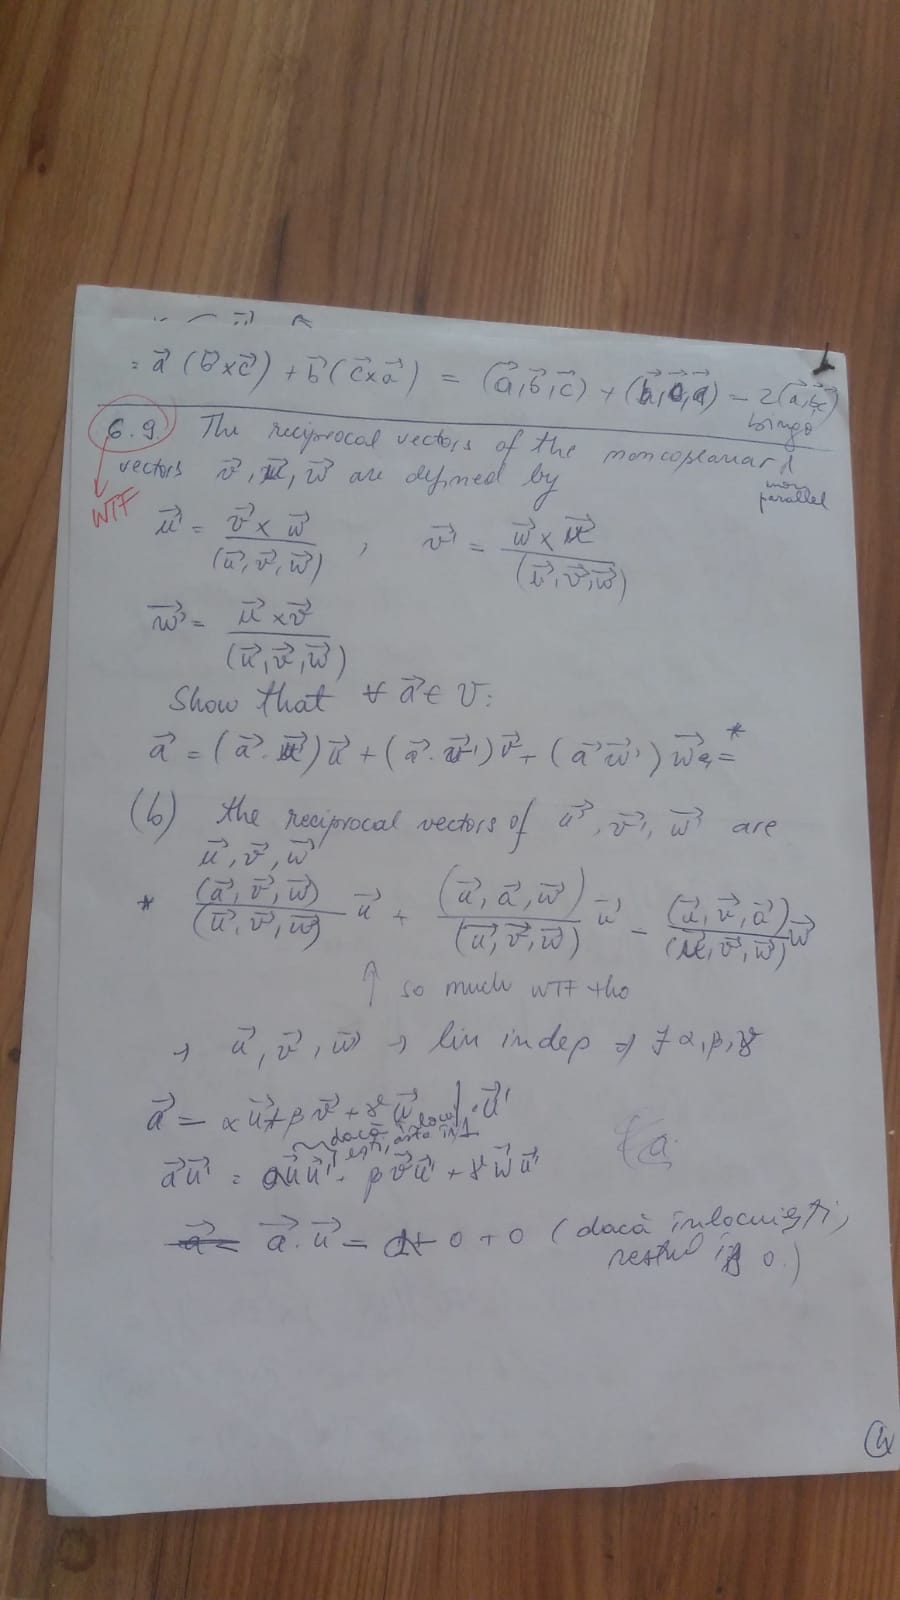 = a⃗ (b⃗ × c⃗) + b⃗ (c⃗ × a⃗) = (a⃗, b⃗, c⃗) + (b⃗, c⃗, a⃗) = 2(a⃗, b⃗, c⃗)
bingo
6.9. The reciprocal vectors of the noncoplanar
vectors v⃗, u⃗, w⃗ are defined by
non parallel
WTF
u⃗' = (v⃗ × w⃗) / (u⃗, v⃗, w⃗) , v⃗' = (w⃗ × u⃗) / (u⃗, v⃗, w⃗)
w⃗' = (u⃗ × v⃗) / (u⃗, v⃗, w⃗)
Show that ∀ a⃗ ∈ V:
a⃗ = (a⃗ · u⃗')u⃗ + (a⃗ · v⃗')v⃗ + (a⃗ w⃗')w⃗ =*
(b) the reciprocal vectors of u⃗', v⃗', w⃗' are
u⃗, v⃗, w⃗
* (a⃗, v⃗, w⃗) / (u⃗, v⃗, w⃗) u⃗ + (u⃗, a⃗, w⃗) / (u⃗, v⃗, w⃗) u⃗ = (u⃗, v⃗, a⃗) / (u⃗, v⃗, w⃗) w⃗
↑ so much WTF tho
→ u⃗, v⃗, w⃗ → lin indep ⇒ ∃ α, β, γ
a⃗ = α u⃗ + β v⃗ + γ w⃗ | · u⃗'
dacă
a⃗ u⃗' = α u⃗ u⃗' + β v⃗ u⃗' + γ w⃗ u⃗'
a⃗ · u⃗ = α + 0 + 0 (dacă înlocuiești,
restul is 0.)
4